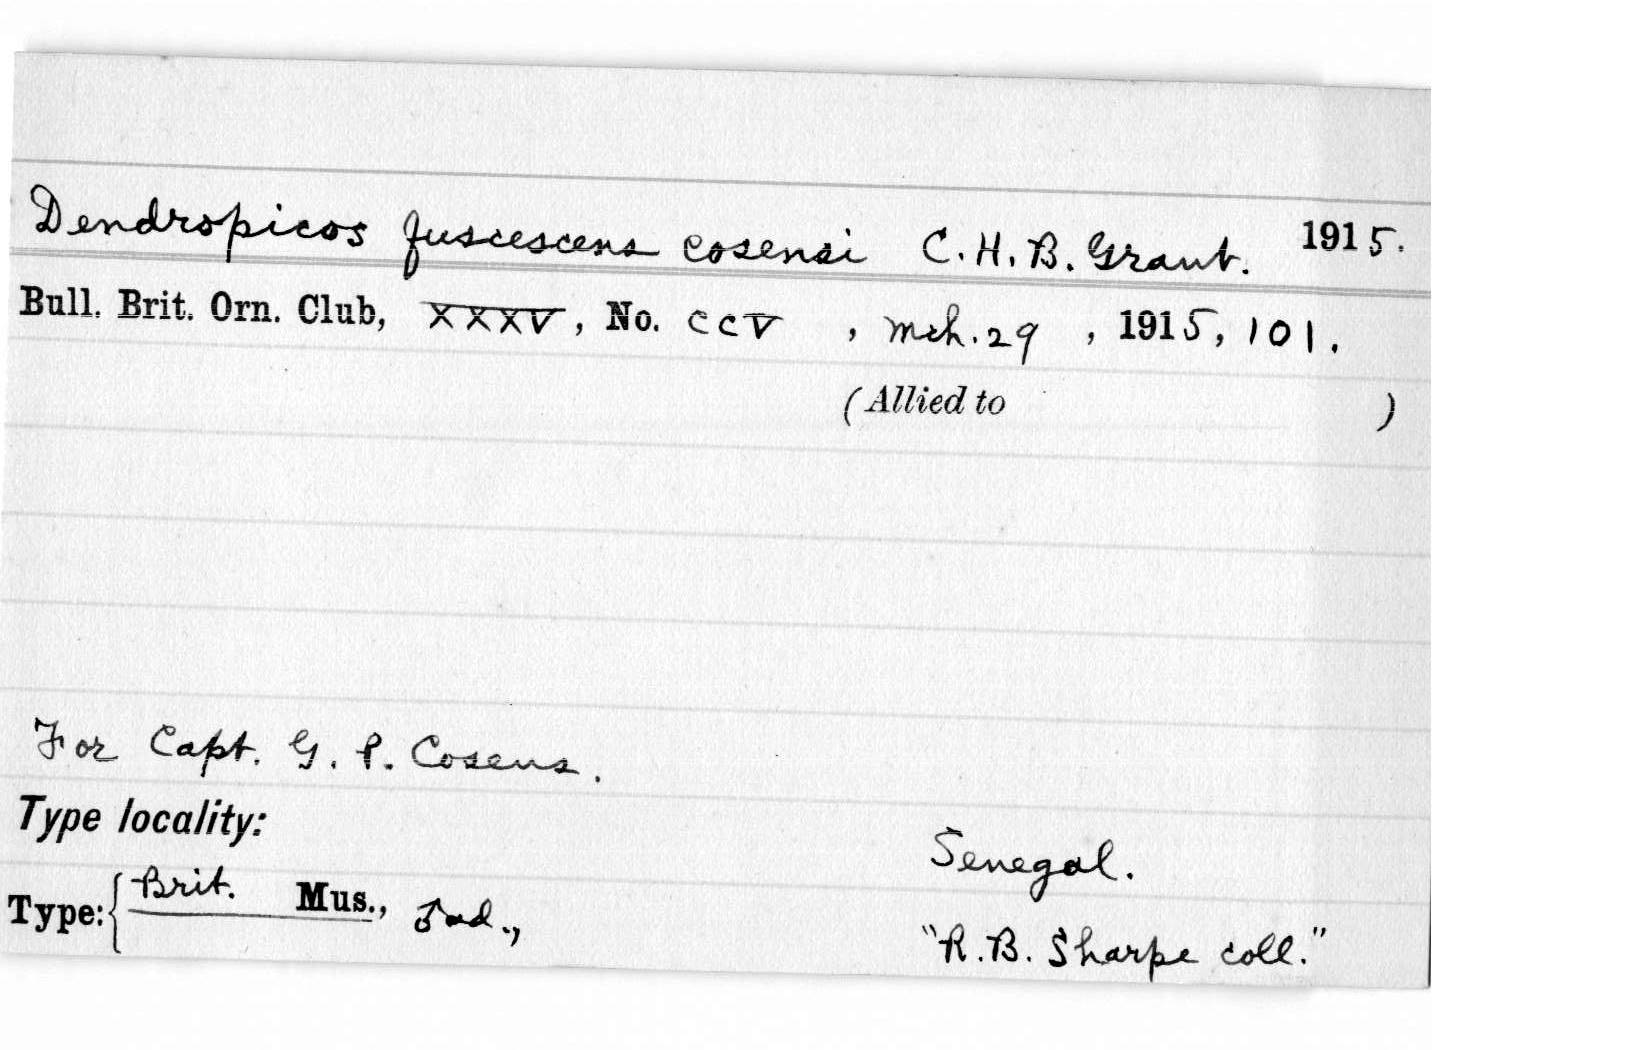 Dendropicos fuscescens cosensi C. H. B. Grant. 1915.
Bull. Brit. Orn. Club, XXXV, No. CCV , Mch. 29 , 1915, 101.
(Allied to )
For Capt. G. P. Cosens.
Type locality:
Senegal.
Type: { Brit. Mus., ♂ ad.,
"R. B. Sharpe coll."